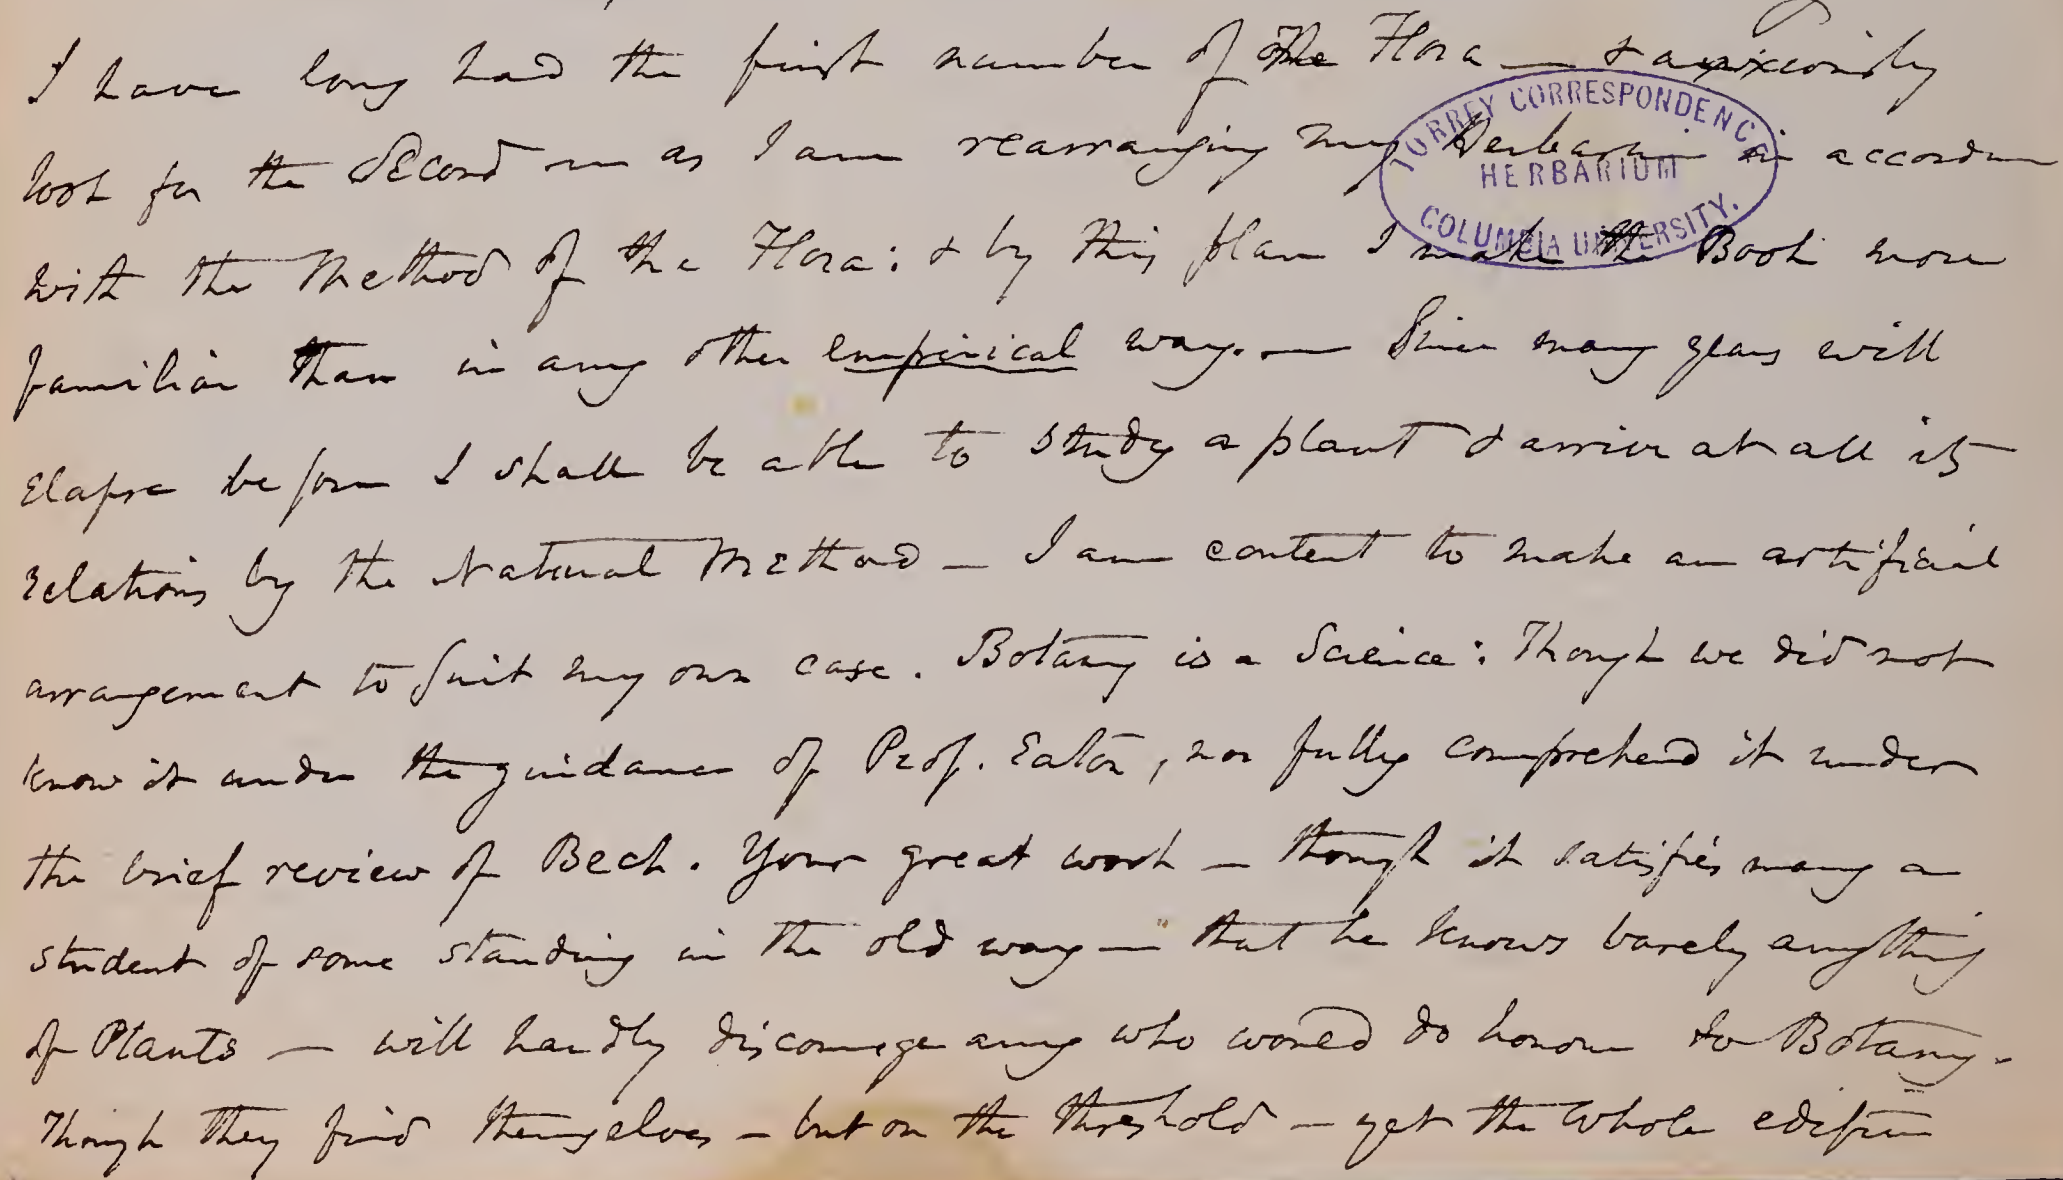 I have long had the first number of the Flora — & anxiously
look for the Second — as I am rearranging my Herbarium in accordance
TORREY CORRESPONDENCE
HERBARIUM
COLUMBIA UNIVERSITY.
with the Method of the Flora: & by this plan I make the Book more
familiar than in any other empirical way. — Since many years will
Elapse before I shall be able to study a plant & arrive at all its
relations by the Natural Method — I am content to make an artificial
arrangement to suit my own case. Botany is a Science: Though we did not
know it under the guidance of Prof. Eaton, nor fully comprehend it under
the brief review of Beck. Your great work — though it satisfies many a
student of some standing in the old way — that he knows barely anything
of Plants — will hardly discourage any who would do honour to Botany.
Though they find themselves — but on the threshold — yet the whole edifice